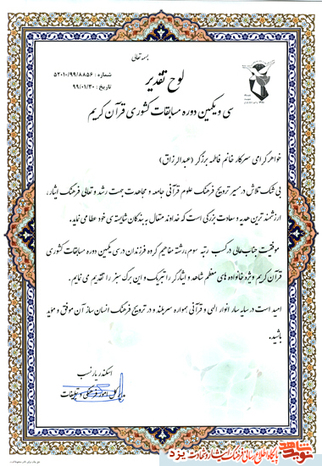 بسمه تعالی
شماره: ۵۲۰۱۰/۹۹/۸۸۵۶
تاریخ: ۹۹/۰۱/۲۰
لوح تقدیر
سی و یکمین دوره مسابقات کشوری قرآن کریم
خواهر گرامی سرکار خانم فاطمه برزگر (عبدالرزاق)
بی شک تلاش در مسیر ترویج فرهنگ علوم قرآنی جامعه و مجاهدت جهت رشد و تعالی فرهنگ ایثار،
ارزشمند ترین هدیه و سعادت بزرگی است که خداوند متعال به بندگان شایسته ی خود عطا می نماید.
موفقیت جنابعالی در کسب رتبه سوم رشته مفاهیم گروه فرزندان در سی و یکمین دوره مسابقات کشوری
قرآن کریم ویژه خانواده های معظم شاهد و ایثارگر را تبریک و این برگ سبز را تقدیم می نمایم.
امید است در سایه سار انوار الهی و قرآنی همواره سربلند و در ترویج فرهنگ انسان ساز آن موفق و مؤید
باشید.
اسکندر یارنسب
مدیر کل امور فرهنگی و تبلیغات
نوید شاهد
یزد